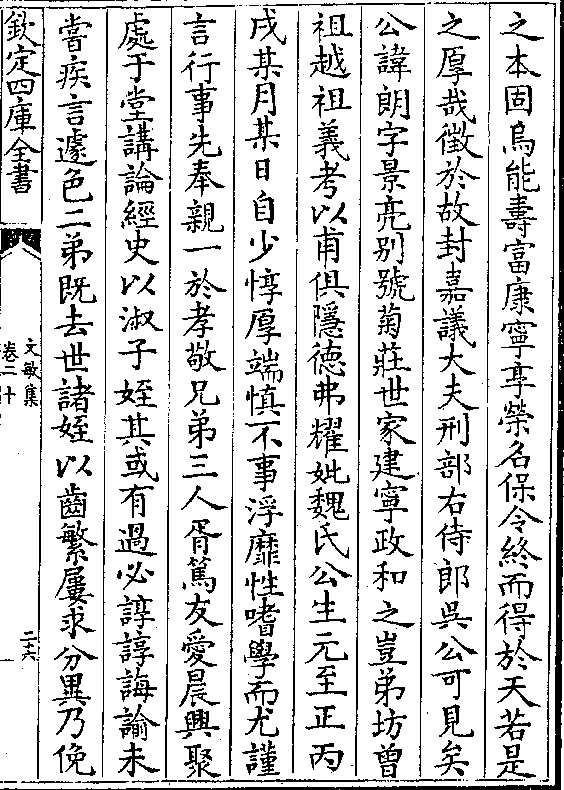 之本固烏能壽富康寧享榮名保令終而得於天若是
之厚哉徵於故封嘉議大夫刑部右侍郎吳公可見矣
公諱朗字景亮別號菊莊世家建寧政和之豈弟坊曾
祖越祖義考以甫俱隱德弗耀妣魏氏公生元至正丙
戌某月某日自少惇厚端慎不事浮靡性嗜學而尤謹
言行事先奉親一於孝敬兄弟三人胥篤友愛晨興聚
處于堂講論經史以淑子姪其或有過必諄諄誨諭未
嘗疾言遽色二弟既去世諸姪以齒繁屢求分異乃俛
欽定四庫全書
文敏集
卷二十
二六